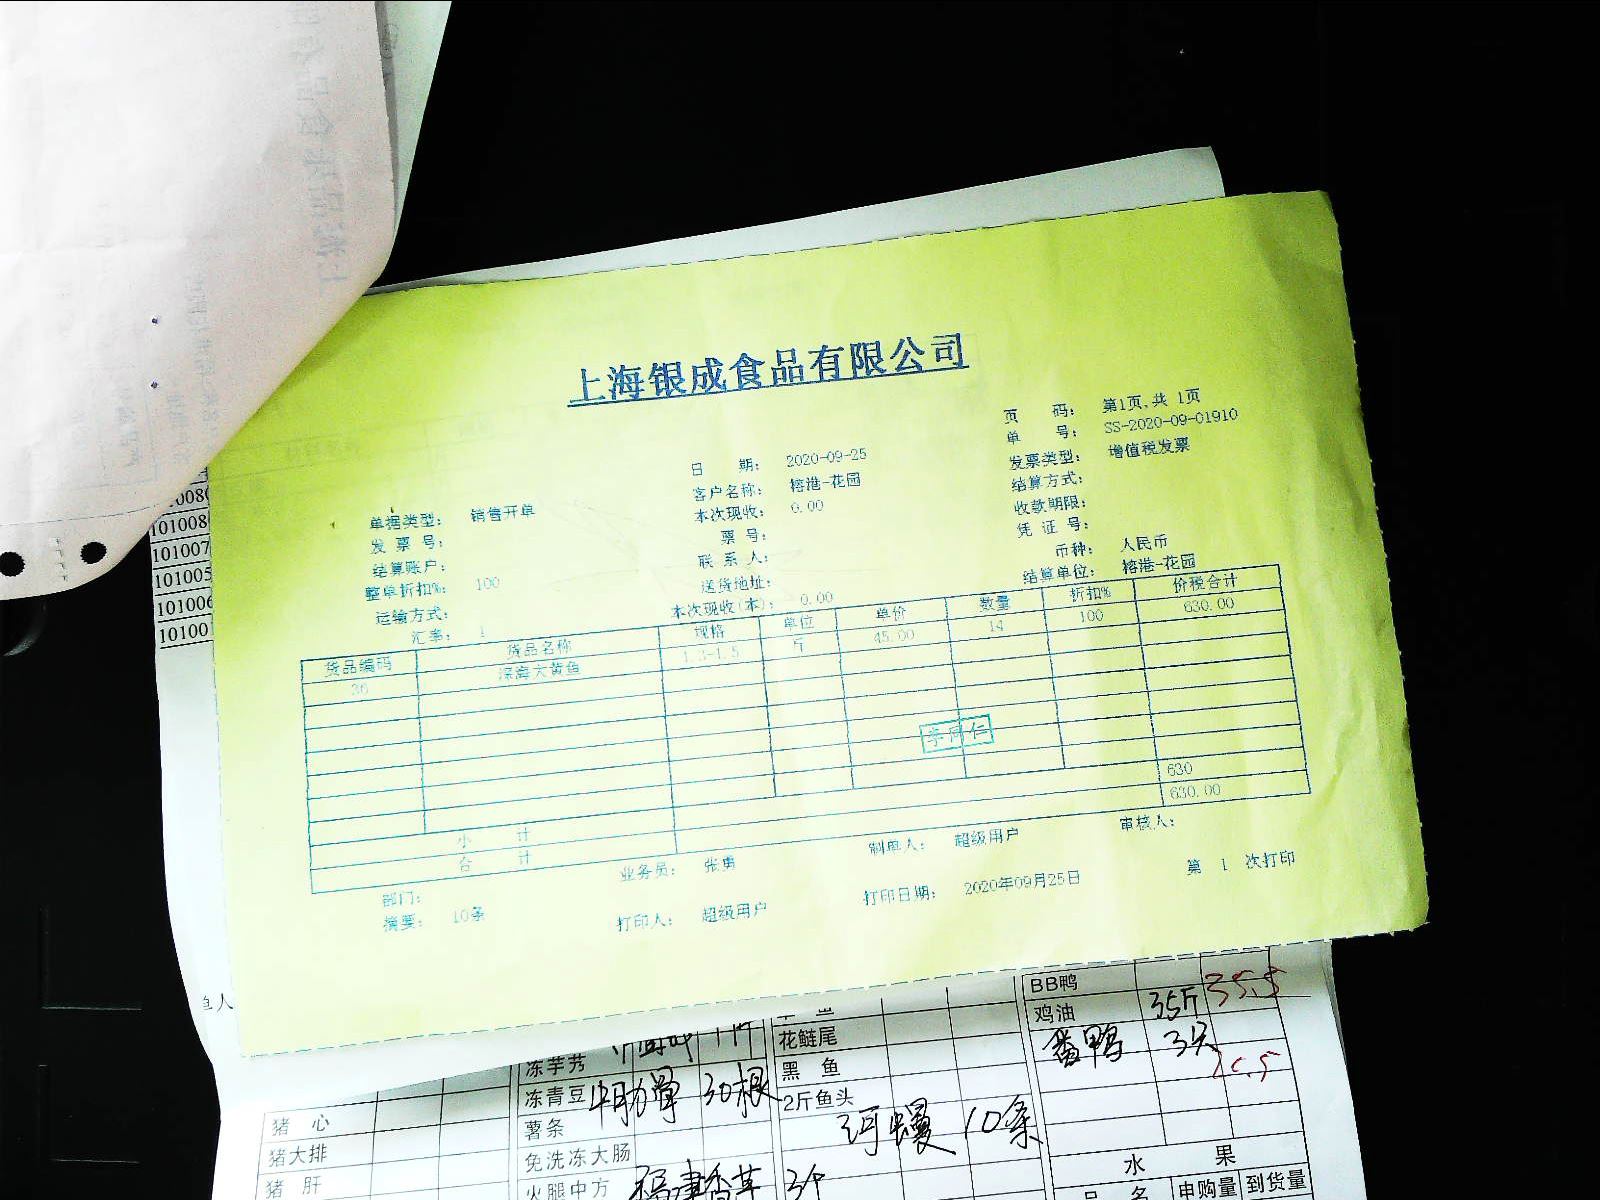 上海银成食品有限公司
页 码： 第1页,共 1页
单 号： SS-2020-09-01910
日 期： 2020-09-25
发票类型： 增值税发票
客户名称： 榕港-花园
结算方式：
单据类型： 销售开单
本次现收： 0.00
收款期限：
发 票 号：
票 号：
凭 证 号：
结算账户：
联 系 人：
币种： 人民币
整单折扣%： 100
送货地址：
结算单位： 榕港-花园
运输方式：
本次现收(本)： 0.00
汇率： 1
货品编码 货品名称 规格 单位 单价 数量 折扣% 价税合计
36 深海大黄鱼 1.3-1.5 斤 45.00 14 100 630.00
李同仁
小 计 630
合 计 630.00
部门： 业务员： 张勇 制单人： 超级用户 审核人：
摘要： 10条 打印人： 超级用户 打印日期： 2020年09月25日 第 1 次打印
101008
101007
101005
101006
101001
BB鸭 35.5
鸡油 35斤
番鸭 3只
花鲢尾
黑 鱼
2斤鱼头
河鳗 10条
冻芋艿
冻青豆 牛肋骨 30根
薯条
免洗冻大肠
火腿中方 3个
猪 心
猪大排
猪 肝
水 果
品 名 申购量 到货量